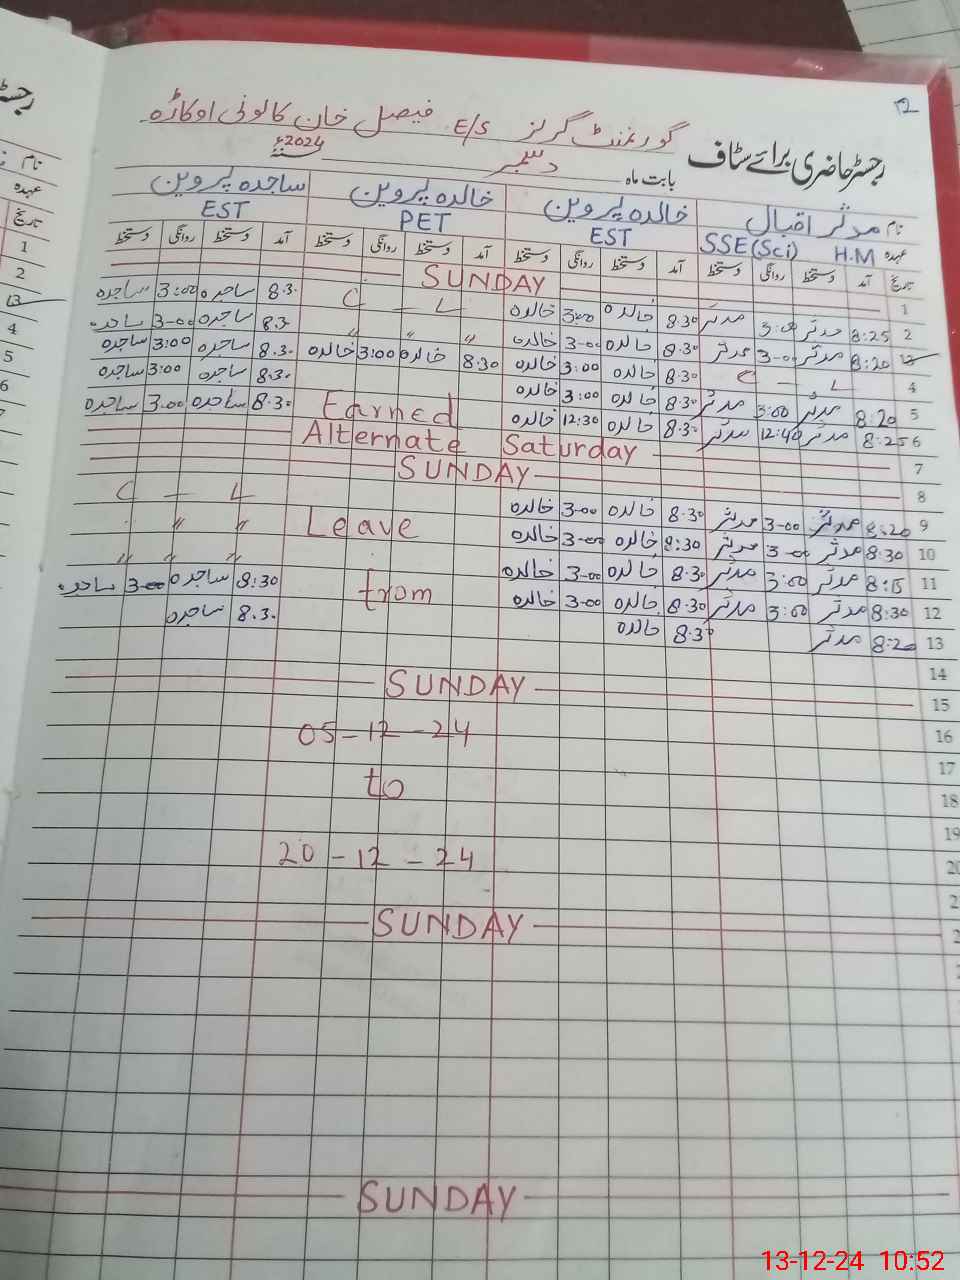 گورنمنٹ گرلز E/S فیصل خان کالونی اوکاڑہ
رجسٹر حاضری برائے سٹاف
بابت ماہ دسمبر سنہ 2024ء
نام مدثر اقبال خالدہ پروین خالدہ پروین ساجدہ پروین
عہدہ H.M SSE(Sci) EST PET EST
تاریخ آمد دستخط روانگی دستخط آمد دستخط روانگی دستخط آمد دستخط روانگی دستخط آمد دستخط روانگی دستخط
1 SUNDAY
2 8:25 مدثر 3:00 مدثر 8.30 خالدہ 3:00 خالدہ C — L 8.30 ساجدہ 3:00 ساجدہ
8:20 مدثر 3-00 مدثر 8.30 خالدہ 3-00 خالدہ " " " 8.30 ساجدہ 3-00 ساجدہ
4 C — L 8.30 خالدہ 3:00 خالدہ 8:30 خالدہ 3:00 خالدہ 8.30 ساجدہ 3:00 ساجدہ
5 8:20 مدثر 3:00 مدثر 8.30 خالدہ 3:00 خالدہ 8.30 ساجدہ 3:00 ساجدہ
6 8:25 مدثر 12:40 مدثر 8.30 خالدہ 12:30 خالدہ Earned 8.30 ساجدہ 3.00 ساجدہ
7 Alternate Saturday
8 SUNDAY
9 8:20 مدثر 3-00 مدثر 8.30 خالدہ 3-00 خالدہ C — L
10 8:30 مدثر 3-00 مدثر 8:30 خالدہ 3-00 خالدہ Leave " "
11 8:15 مدثر 3:00 مدثر 8.30 خالدہ 3-00 خالدہ " " "
12 8:30 مدثر 3:00 مدثر 8:30 خالدہ 3-00 خالدہ from 8:30 ساجدہ 3-00 ساجدہ
13 8:20 مدثر 8.30 خالدہ 8.30 ساجدہ
14
15 SUNDAY
16 05-12-24
17
18 to
19
20 20-12-24
SUNDAY
SUNDAY
13-12-24 10:52